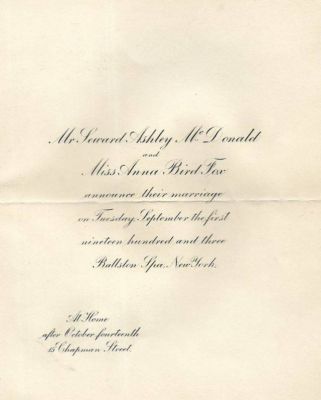 Mr Seward Ashley McDonald
and
Miss Anna Bird Fox
announce their marriage
on Tuesday, September the first
nineteen hundred and three
Ballston Spa, New York.
At Home
after October fourteenth
15 Chapman Street.